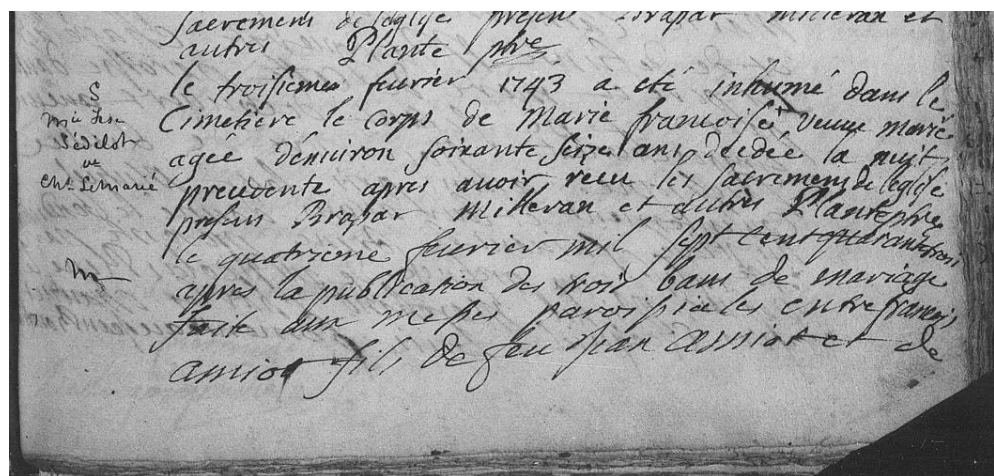 sacremens de l'eglise presens Brassar milleran et
autres Plante ptre
le troisieme fevrier 1743 a eté inhumé dans le
S
Cimetiere le corps de Marie francoise veuve Marié
Mie fse
Sédilot
agée denviron soixante seize ans décedée la nuit
ve
precedente apres avoir recu les sacremens de l'eglise
Cht. Lemarié
presens Brassar Milleran et autres Plante ptre
le quatrieme fevrier mil sept cent quarante trois
M
apres la publication des trois bans de mariage
faite aux messes paroissiales entre francois
amiot fils de feu Jean amiot et de